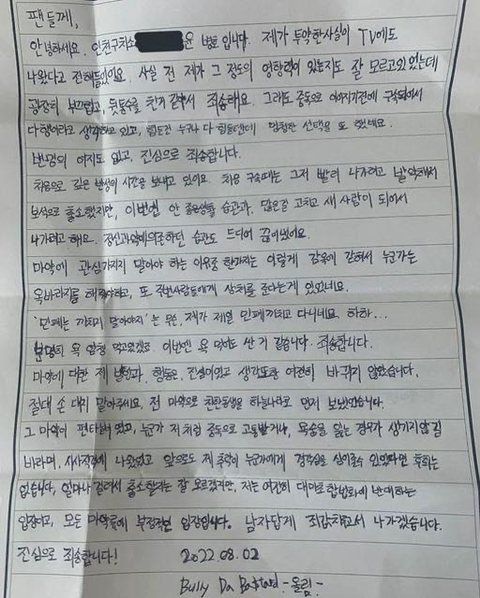 팬들께,
안녕하세요. 인천구치소 번호 입니다. 제가 투약한사실이 TV에도
나왔다고 전해들었어요. 사실 전 제가 그 정도의 영향력이 있는지도 잘 모르고있었는데
굉장히 부끄럽고, 뒷통수를 친거 같아서 죄송해요. 그래도 중독으로 이어지기전에 구속되어서
다행이라고 생각하고 있고, 힘든건 누구나 다 힘들텐데 멍청한 선택을 또 했네요.
변명의 여지도 없고, 진심으로 죄송합니다.
처음으로 깊은 반성의 시간을 보내고 있어요. 처음 구속때는 그저 빨리 나가려고 발악해서
보석으로 출소했지만, 이번엔 안 좋은생활 습관과, 많은걸 고치고 새 사람이 되어서
나가려고 해요. 정신과약에의존하던 습관도 드디어 끊어냈어요.
마약에 관심가지지 말아야 하는 이유중 한가지는 이렇게 감옥에 갇혀서 누군가는
옥바라지를 해줘야하고, 또 주변사람들에게 상처를 준다는게 있겠네요.
'민폐는 끼치지 말아야지' 는 무슨, 제가 제일 민폐끼치고 다니네요. 하하...
분명히 욕 엄청 먹고있겠죠. 이번엔 욕 먹어도 싼 거 같습니다. 죄송합니다.
마약에 대한 제 발언과, 행동은, 진실이었고 생각또한 여전히 바뀌지 않았습니다.
절대 손 대지 말아주세요. 전 마약으로 친한동생을 하늘나라로 먼저 보냈었습니다.
그 마약이 펜타닐이었고, 누군가 저처럼 중독으로 고통받거나, 목숨을 잃는 경우가 생기지않길
바라며, 시사직격에 나왔었고 앞으로도 제 추락이 누군가에게 경각심을 심어줄수 있었다면 후회는
없습니다. 얼마나 걸려서 출소할지는 잘 모르겠지만, 저는 여전히 대마초합법화에 반대하는
입장이고, 모든 마약류에 부정적인 입장입니다. 남자답게 죄값치르고서 나가겠습니다.
진심으로 죄송합니다! 2022.08.02
Bully Da Ba$tard -올림-